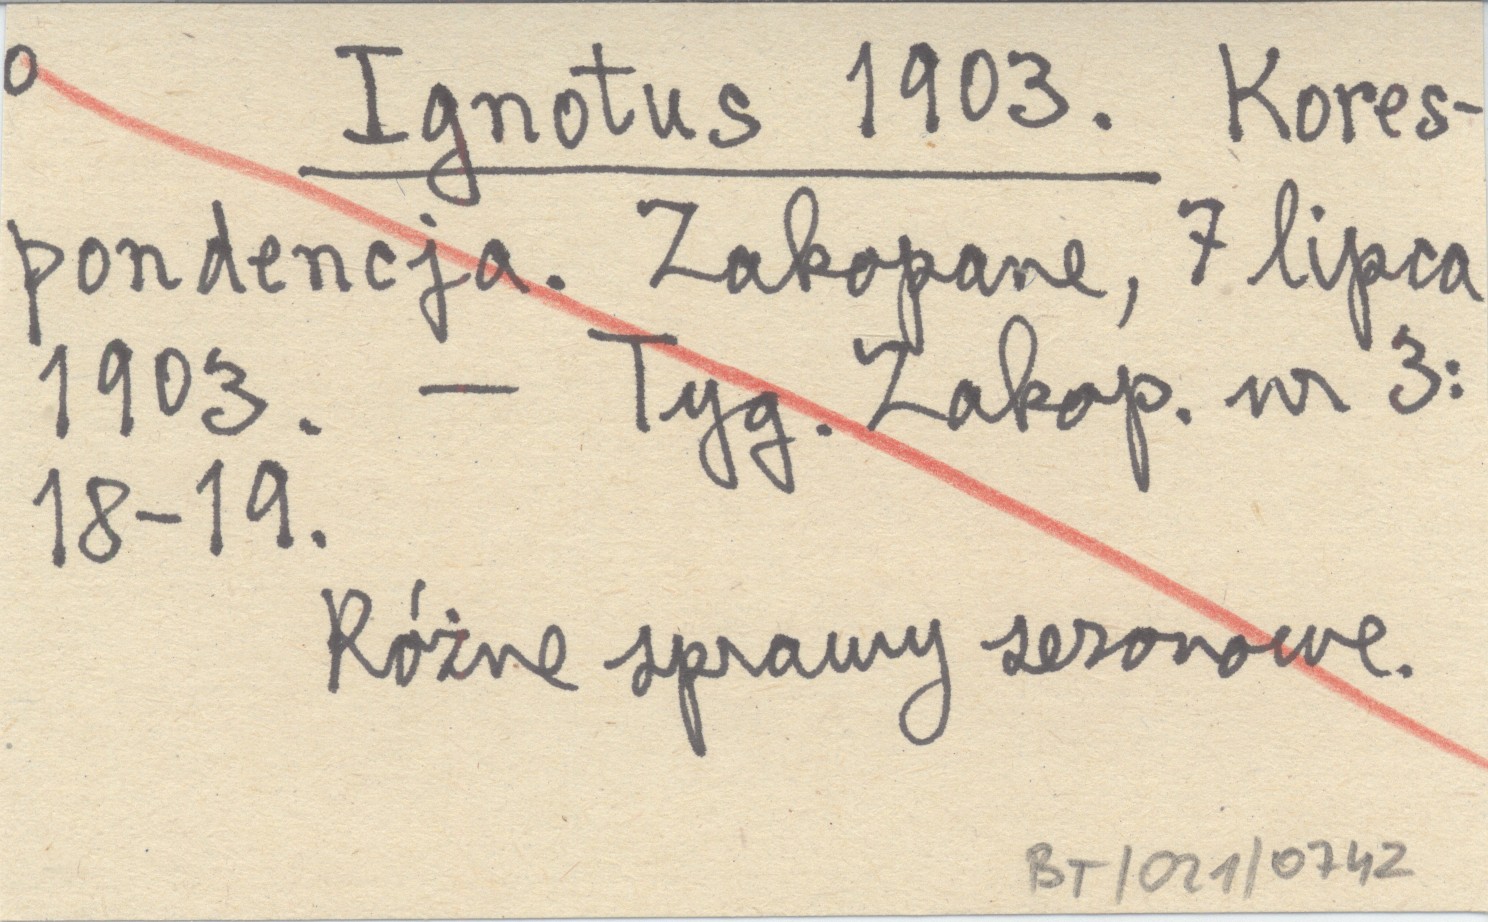 o Ignotus 1903. Kores-
pondencja. Zakopane, 7 lipca
1903. — Tyg. Zakop. nr 3:
18-19.
Różne sprawy sezonowe.
BT/021/0742